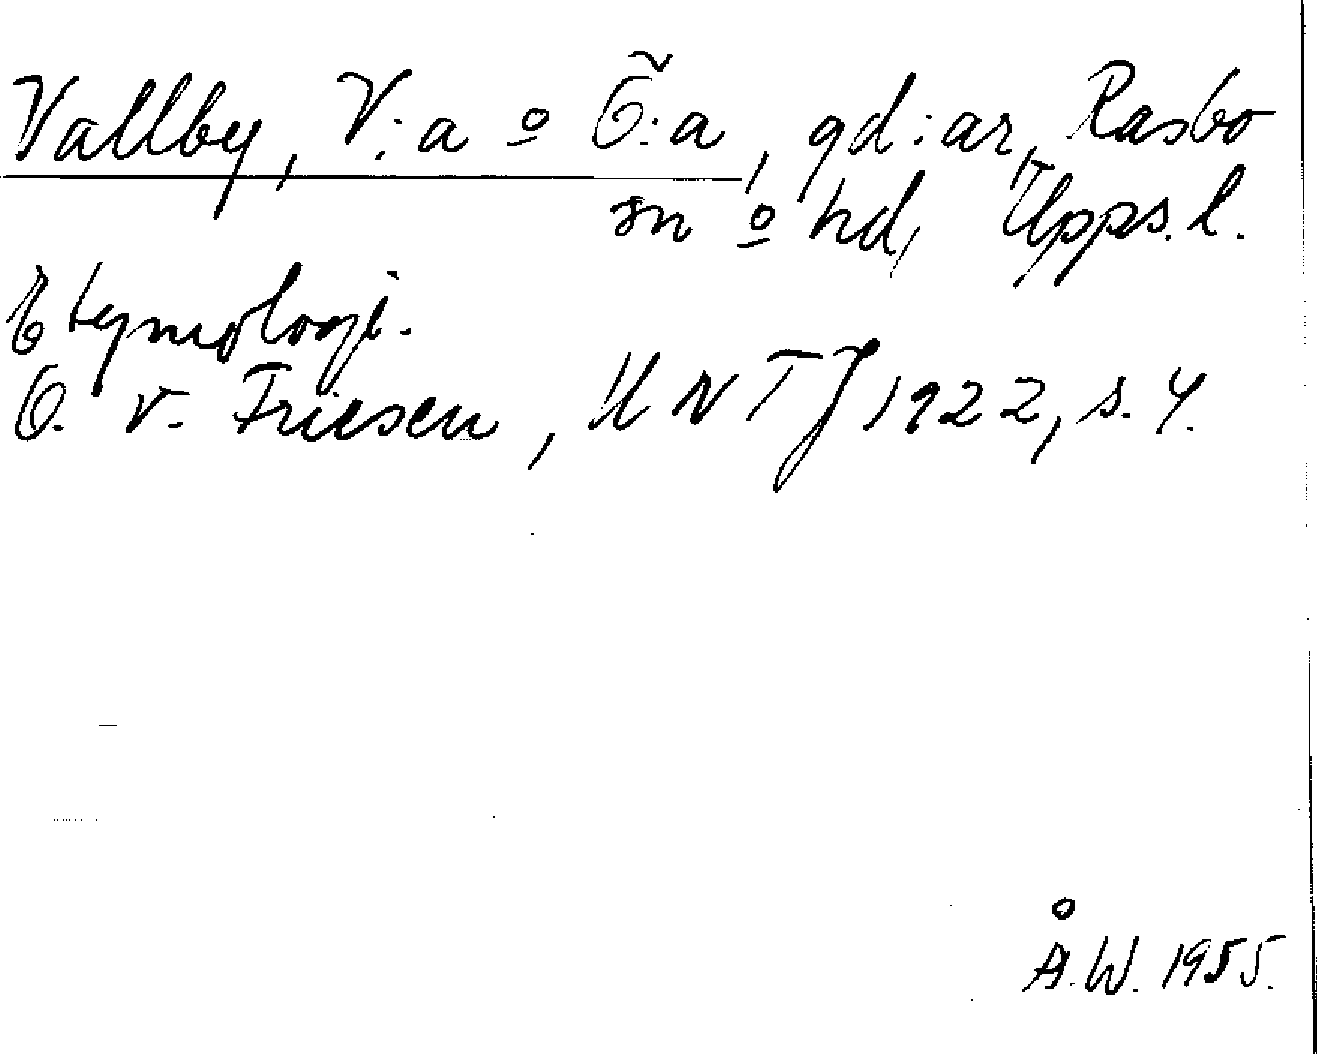 Vallby, V:a o Ö:a, gd:ar, Rasbo
sn o hd, Upps. l.
Etymologi.
O. v. Friesen, UNTJ 1922, s. 4.
Å.W. 1955.